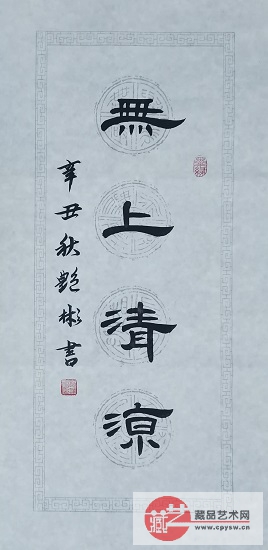 無上清涼
辛丑秋艷彬書
藏艺
藏品艺术网
www.cpysw.cn